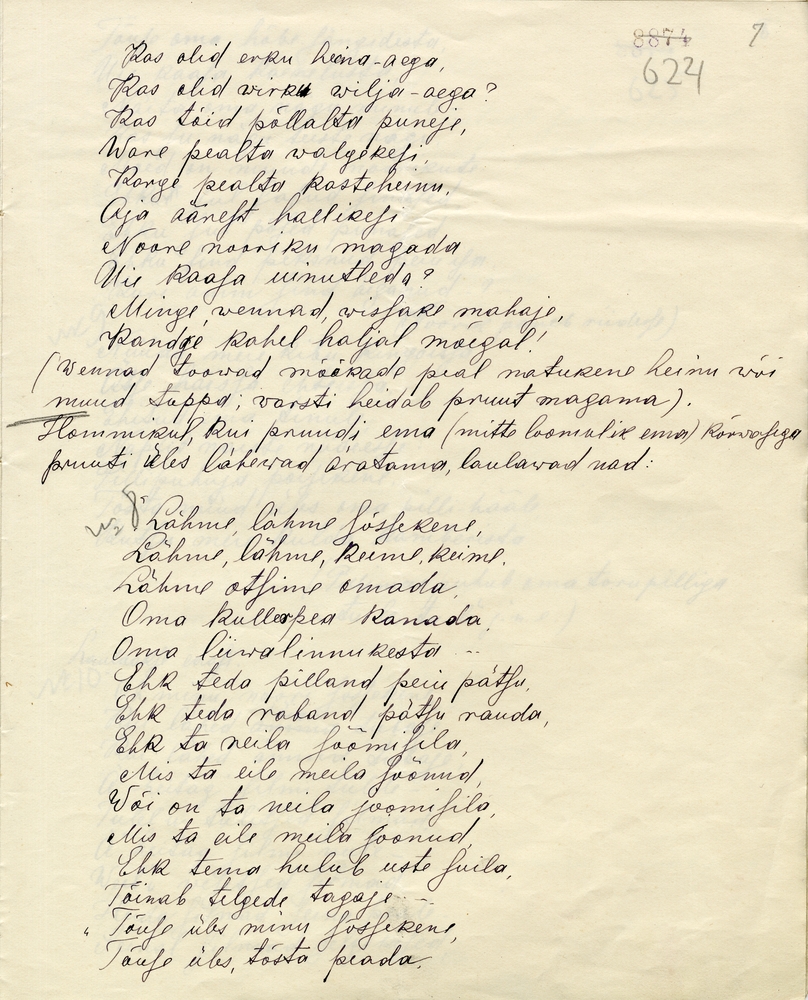 8874 7
624
Kas olid erku heina-aega,
Kas olid virku wilja-aega?
Kas tõid põllalta puneje,
Ware pealta walgekesi,
Karge pealta kasteheinu,
Aja äärest hallikesi
Noore nooriku magada
Uie kaasa uinutleda?
Minge, wennad, wissake mahaje,
Kandke kahel haljal mõegal!
(Wennad toowad mõõkade peal natukene heinu wõi
muud tuppa; varsti heidab pruut magama).
Hommikul, kui pruudi ema (mitte loomulik ema) kõrwasega
pruuti üles lähewad äratama, laulawad nad:
№ 8 "Lähme, lähme sõssekene,
Lähme, lähme, keime, keime.
Lähme otsime omada,
Oma kullerpea kanada,
Oma liiwalinnukesta --
Ehk teda pilland peiu pätsu,
Ehk teda raband pätsu rauda,
Ehk ta neila söömisila,
Mis ta eile meila söönud,
Wõi on ta neila joomisila,
Mis ta eile meila joonud,
Ehk tema hulub uste suila,
Tõinab telgede tagaje --
„ Tõuse üles minu sõssekene,
Tõuse üles, tõsta peada,